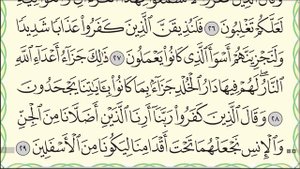 لَعَلَّكُمْ تَغْلِبُونَ ٢٦ فَلَنُذِيقَنَّ الَّذِينَ كَفَرُوا عَذَابًا شَدِيدًا
وَلَنَجْزِيَنَّهُمْ أَسْوَأَ الَّذِي كَانُوا يَعْمَلُونَ ٢٧ ذَٰلِكَ جَزَاءُ أَعْدَاءِ اللَّهِ
النَّارُ لَهُمْ فِيهَا دَارُ الْخُلْدِ جَزَاءً بِمَا كَانُوا بِآيَاتِنَا يَجْحَدُونَ
٢٨ وَقَالَ الَّذِينَ كَفَرُوا رَبَّنَا أَرِنَا الَّذَيْنِ أَضَلَّانَا مِنَ الْجِنِّ
وَالْإِنسِ نَجْعَلْهُمَا تَحْتَ أَقْدَامِنَا لِيَكُونَا مِنَ الْأَسْفَلِينَ ٢٩